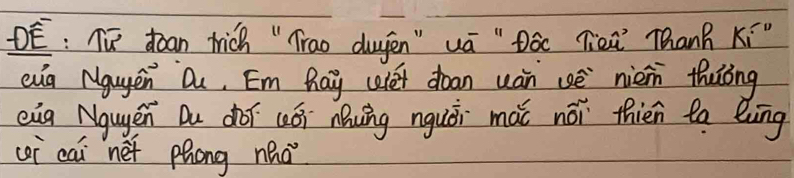 ĐỀ: Từ đoạn trích "Trao duyên" và "Độc Tiểu Thanh Kí"
của Nguyễn Du. Em hãy viết đoạn văn về niềm thương
của Nguyễn Du đối với những người mắc nỗi thiên lạ lùng
vì cái nết phong nhã